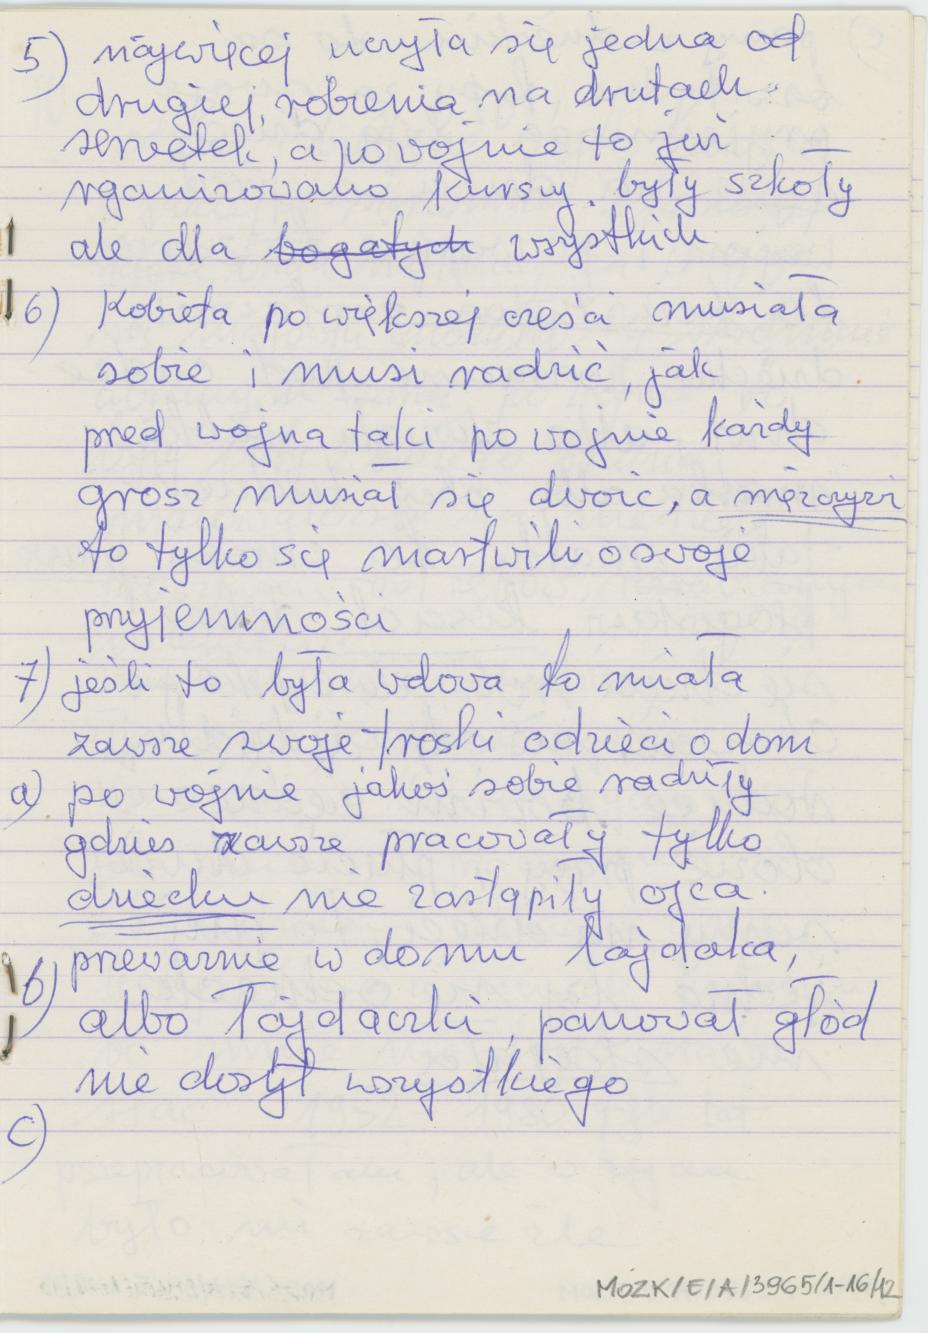 5) najwięcej uczyła się jedna od
drugiej, robienia na drutach
serwetek, a po wojnie to już
rganizowano kursy. były szkoły
ale dla ~~bogatych~~ wszystkich
6) Kobieta po większej cześci musiała
sobie i musi radzić, jak
pred wojna taki po wojnie każdy
grosz musiał się dwoic, a męzczyzi
to tylko się martwili o swoje
pryjemności
7) jeśli to była wdowa to miała
zawsze swoje troski o dzieci o dom
a) po wojnie jakoś sobie radziły
gdzies zawsze pracowały tylko
dziecku nie zastąpiły ojca.
prewaznie w domu łajdaka,
b) albo łajdaczki, panował głód
nie dosyt wszystkiego
c)
MOZK/E/A/3965/1-16/12